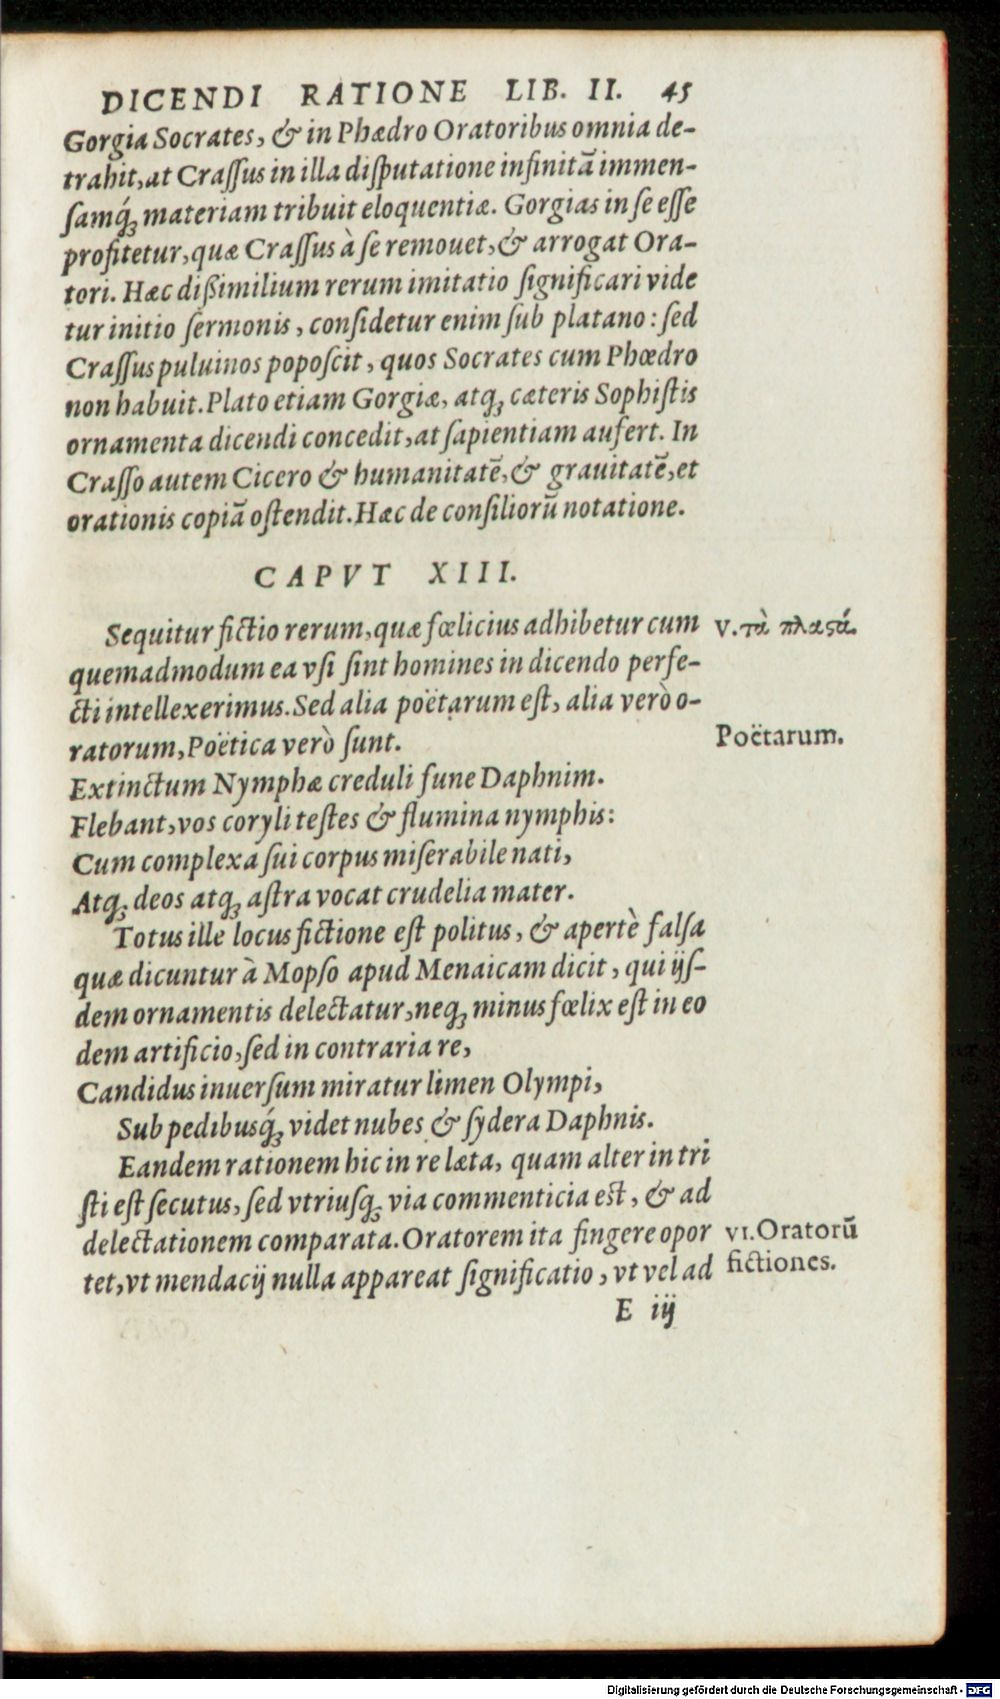 DICENDI RATIONE LIB. II. 45
Gorgia Socrates, & in Phædro Oratoribus omnia de-
trahit, at Craſſus in illa diſputatione infinitā immen-
ſamq́; materiam tribuit eloquentiæ. Gorgias in ſe eſſe
profitetur, quæ Craſſus à ſe remouet, & arrogat Ora-
tori. Hæc dißimilium rerum imitatio ſignificari vide
tur initio ſermonis, conſidetur enim ſub platano: ſed
Craſſus puluinos popoſcit, quos Socrates cum Phœdro
non habuit. Plato etiam Gorgiæ, atq; cæteris Sophiſtis
ornamenta dicendi concedit, at ſapientiam aufert. In
Craſſo autem Cicero & humanitatē, & grauitatē, et
orationis copiā oſtendit. Hæc de conſiliorū notatione.
CAPVT XIII.
Sequitur fictio rerum, quæ fœlicius adhibetur cum
V. τὰ πλαϛά.
quemadmodum ea vſi ſint homines in dicendo perfe-
cti intellexerimus. Sed alia poëtarum eſt, alia verò o-
ratorum, Poëtica verò ſunt.
Poëtarum.
Extinctum Nymphæ creduli fune Daphnim.
Flebant, vos coryli teſtes & flumina nymphis:
Cum complexa ſui corpus miſerabile nati,
Atq; deos atq; aſtra vocat crudelia mater.
Totus ille locus fictione eſt politus, & apertè falſa
quæ dicuntur à Mopſo apud Menaicam dicit, qui ijſ-
dem ornamentis delectatur, neq; minus fœlix eſt in eo
dem artificio, ſed in contraria re,
Candidus inuerſum miratur limen Olympi,
Sub pedibusq́; videt nubes & ſydera Daphnis.
Eandem rationem hic in re læta, quam alter in tri
ſti eſt ſecutus, ſed vtriuſq; via commenticia eſt, & ad
delectationem comparata. Oratorem ita fingere opor
VI. Oratorū
tet, vt mendacij nulla appareat ſignificatio, vt vel ad
fictiones.
E iij
Digitalisierung gefördert durch die Deutsche Forschungsgemeinschaft - DFG